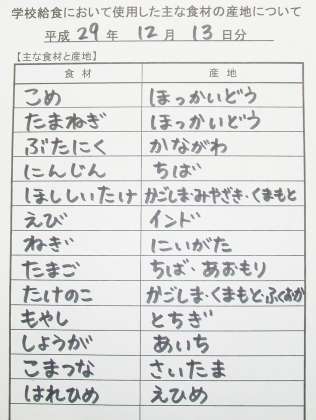 学校給食において使用した主な食材の産地について
平成 29 年 12 月 13 日分
【主な食材と産地】
食 材 産 地
こめ ほっかいどう
たまねぎ ほっかいどう
ぶたにく かながわ
にんじん ちば
ほししいたけ かごしま・みやざき・くまもと
えび インド
ねぎ にいがた
たまご ちば・あおもり
たけのこ かごしま・くまもと・ふくおか
もやし とちぎ
しょうが あいち
こまつな さいたま
はれひめ えひめ